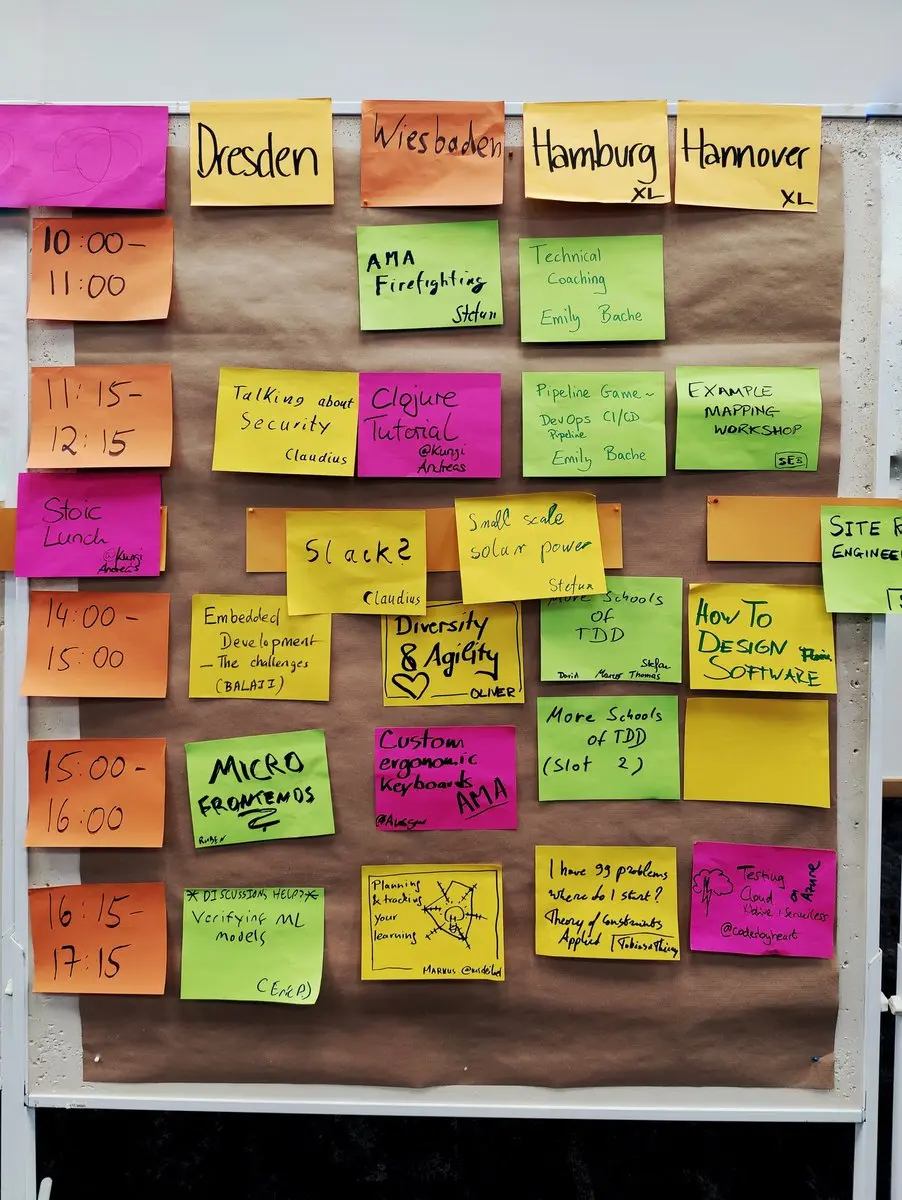 Dresden
Wiesbaden
Hamburg
XL
Hannover
XL
10:00-
11:00
AMA
Firefighting
Stefan
Technical
Coaching
Emily Bache
11:15-
12:15
Talking about
Security
Claudius
Clojure
Tutorial
@Kungi
Andreas
Pipeline Game~
DevOps CI/CD
Pipeline
Emily Bache
EXAMPLE
MAPPING
WORKSHOP
SEB
Stoic
Lunch
@Kungi
Andreas
Slack?
Claudius
Small scale
solar power
Stefan
SITE
ENGINEE
14:00-
15:00
Embedded
Development
- The challenges
(BALAJI)
Diversity
& Agility
OLIVER
More Schools
of
TDD
Stefan
David Marco Thomas
HOW TO
DESIGN
SOFTWARE
15:00-
16:00
MICRO
FRONTENDS
Custom
ergonomic
Keyboards
AMA
More Schools
of TDD
(Slot 2)
16:15-
17:15
* DISCUSSION, HELP?*
Verifying ML
models
Planning
& tracking
your
learning
MARKUS
I have 99 problems
where do I start?
Theory of Constraints
Applied
Testing
Cloud
Native + Serverless
on Azure
@codesbyheart